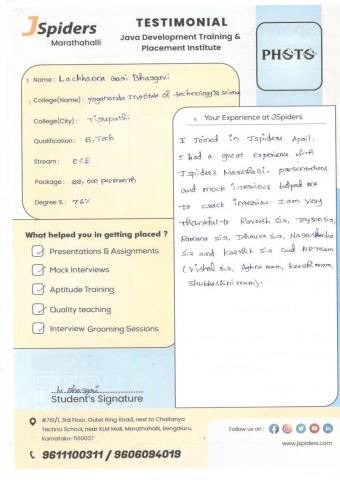 JSpiders
Marathahalli
TESTIMONIAL
Java Development Training &
Placement Institute
PHOTO
Name: Lachhanna Gari Bhargavi
College(Name): yogananda Institute of technology & science
College(City): Tirupathi
Qualification: B.Tech
Stream: ECE
Package: permonth
Degree %: 76%
Your Experience at JSpiders
I Joined in Jspiders April.
I had a great experience with
Jspiders Marathalli. presentations
and mock interviews helped me
to crack interview. I am very
thankful to Raveesh sir,
Ramana sir, Dhruva sir,
sir and Karthik sir and HR Team
(Vishal sir, mam, mam,
Shubhashini mam).
What helped you in getting placed ?
Presentations & Assignments
Mock Interviews
Aptitude Training
Quality teaching
Interview Grooming Sessions
Bhargavi
Student's Signature
#761/1, 3rd Floor, Outer Ring Road, next to Chaitanya
Techno School, near KLM Mall, Marathahalli, Bengaluru,
Karnataka-560037
9611100311 / 9606094019
Follow us on :
www.jspiders.com